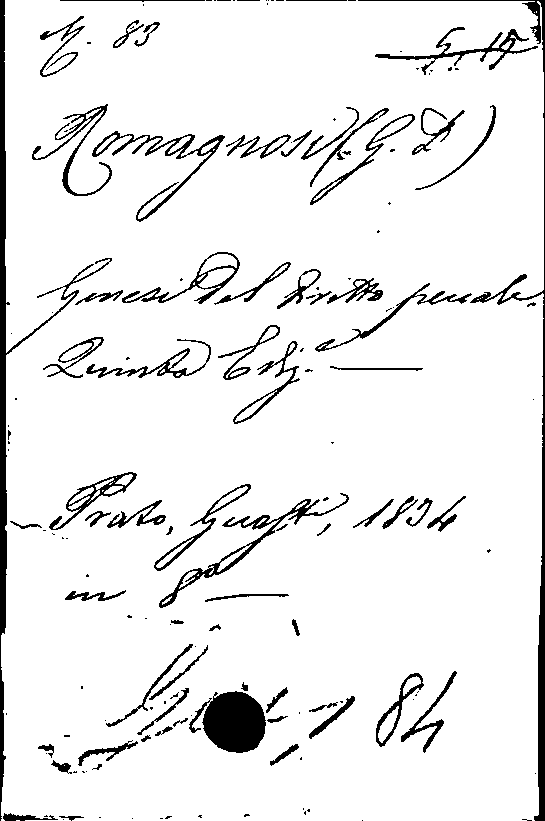 M. 83
5. 15
Romagnosi (G. D)
Genesi del diritto penale.
Quinta Ediz.e
Prato, Guasti, 1834
in 8o
84